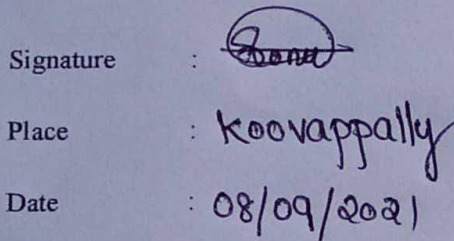 Signature :
Place : Koovappally
Date : 08/09/2021